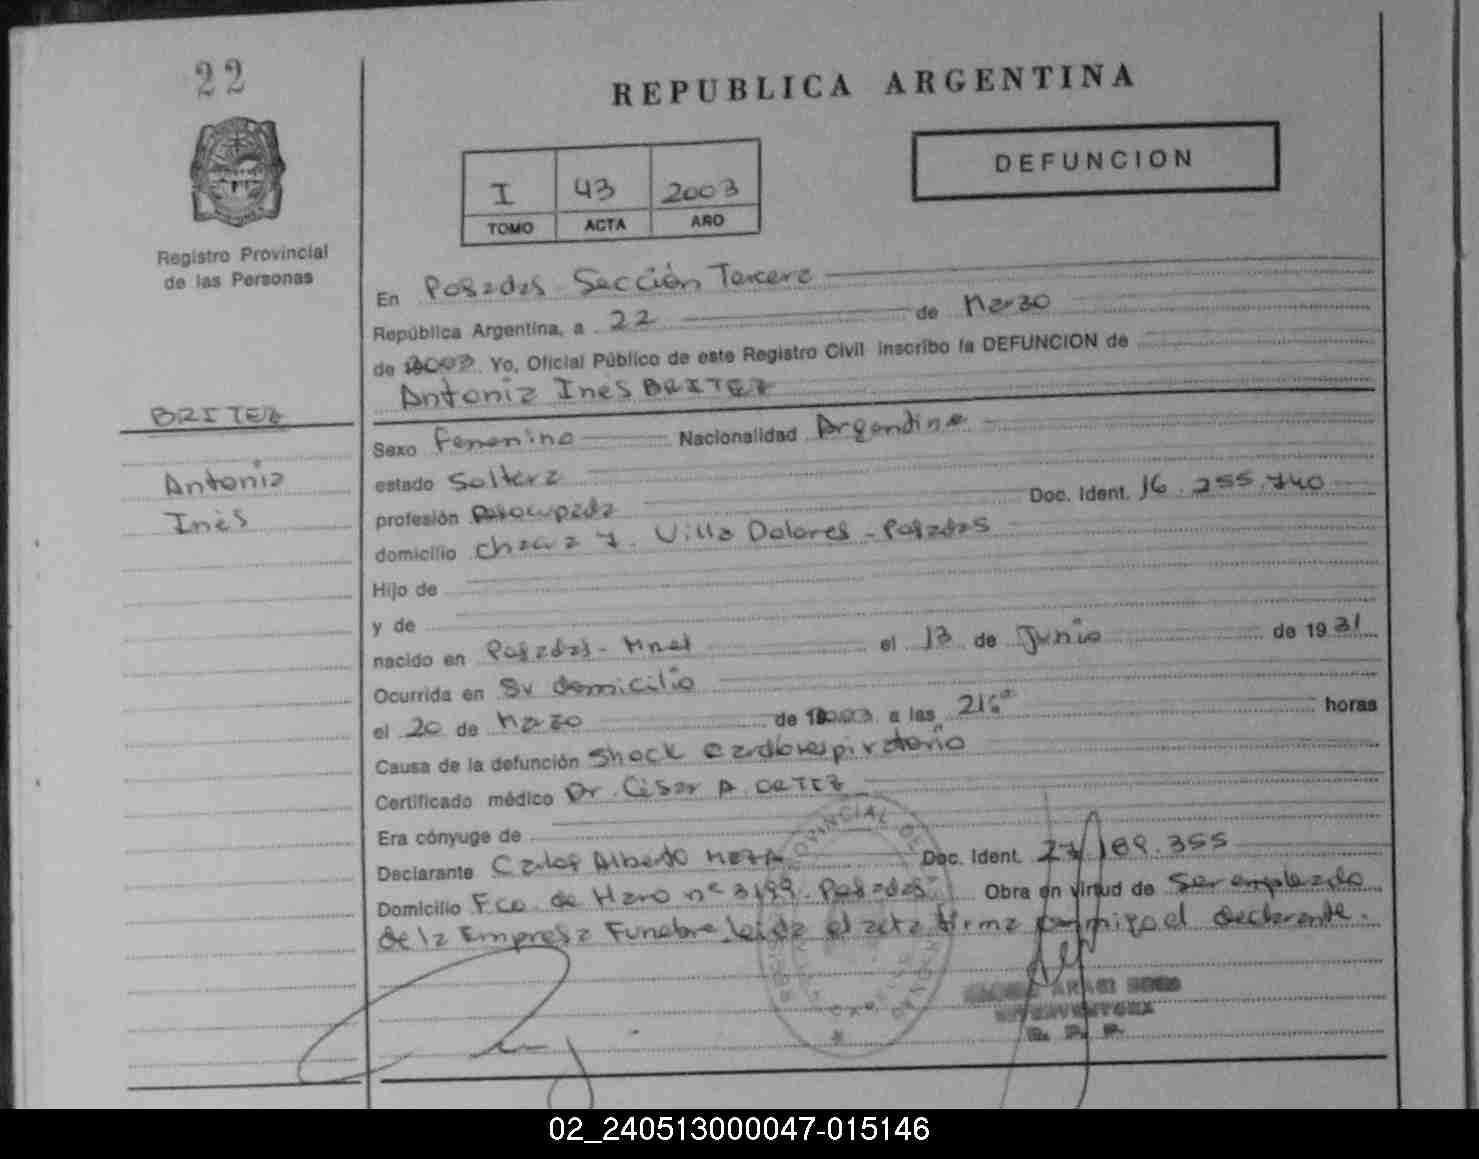 22
REPUBLICA ARGENTINA
DEFUNCION
I 43 2003
TOMO ACTA AÑO
Registro Provincial
de las Personas
En Posadas Sección Tercera
República Argentina, a 22 de Marzo
de 2003 Yo, Oficial Público de este Registro Civil inscribo la DEFUNCION de
Antonia Ines BRITEZ
BRITEZ
Antonia
Inés
Sexo Femenino Nacionalidad Argentina
estado Soltera
profesión Desocupada Doc. Ident. 16.255.740
domicilio chacra 7. Villa Dolores - Posadas
Hijo de
y de
nacido en Posadas - Mnes el 13 de Junio de 1931
Ocurrida en Su domicilio
el 20 de Marzo de 2003 a las 21:00 horas
Causa de la defunción Shock Cardiorespiratorio
Certificado médico Dr César A
Era cónyuge de
Declarante Carlos Alberto Doc. Ident. 189.355
Domicilio Fco de Haro nº 3199 Posadas Obra en virtud de Ser empleado
de la Empresa Funebre leida el acta firma conmigo el declarante.
R. P. P.
02_240513000047-015146